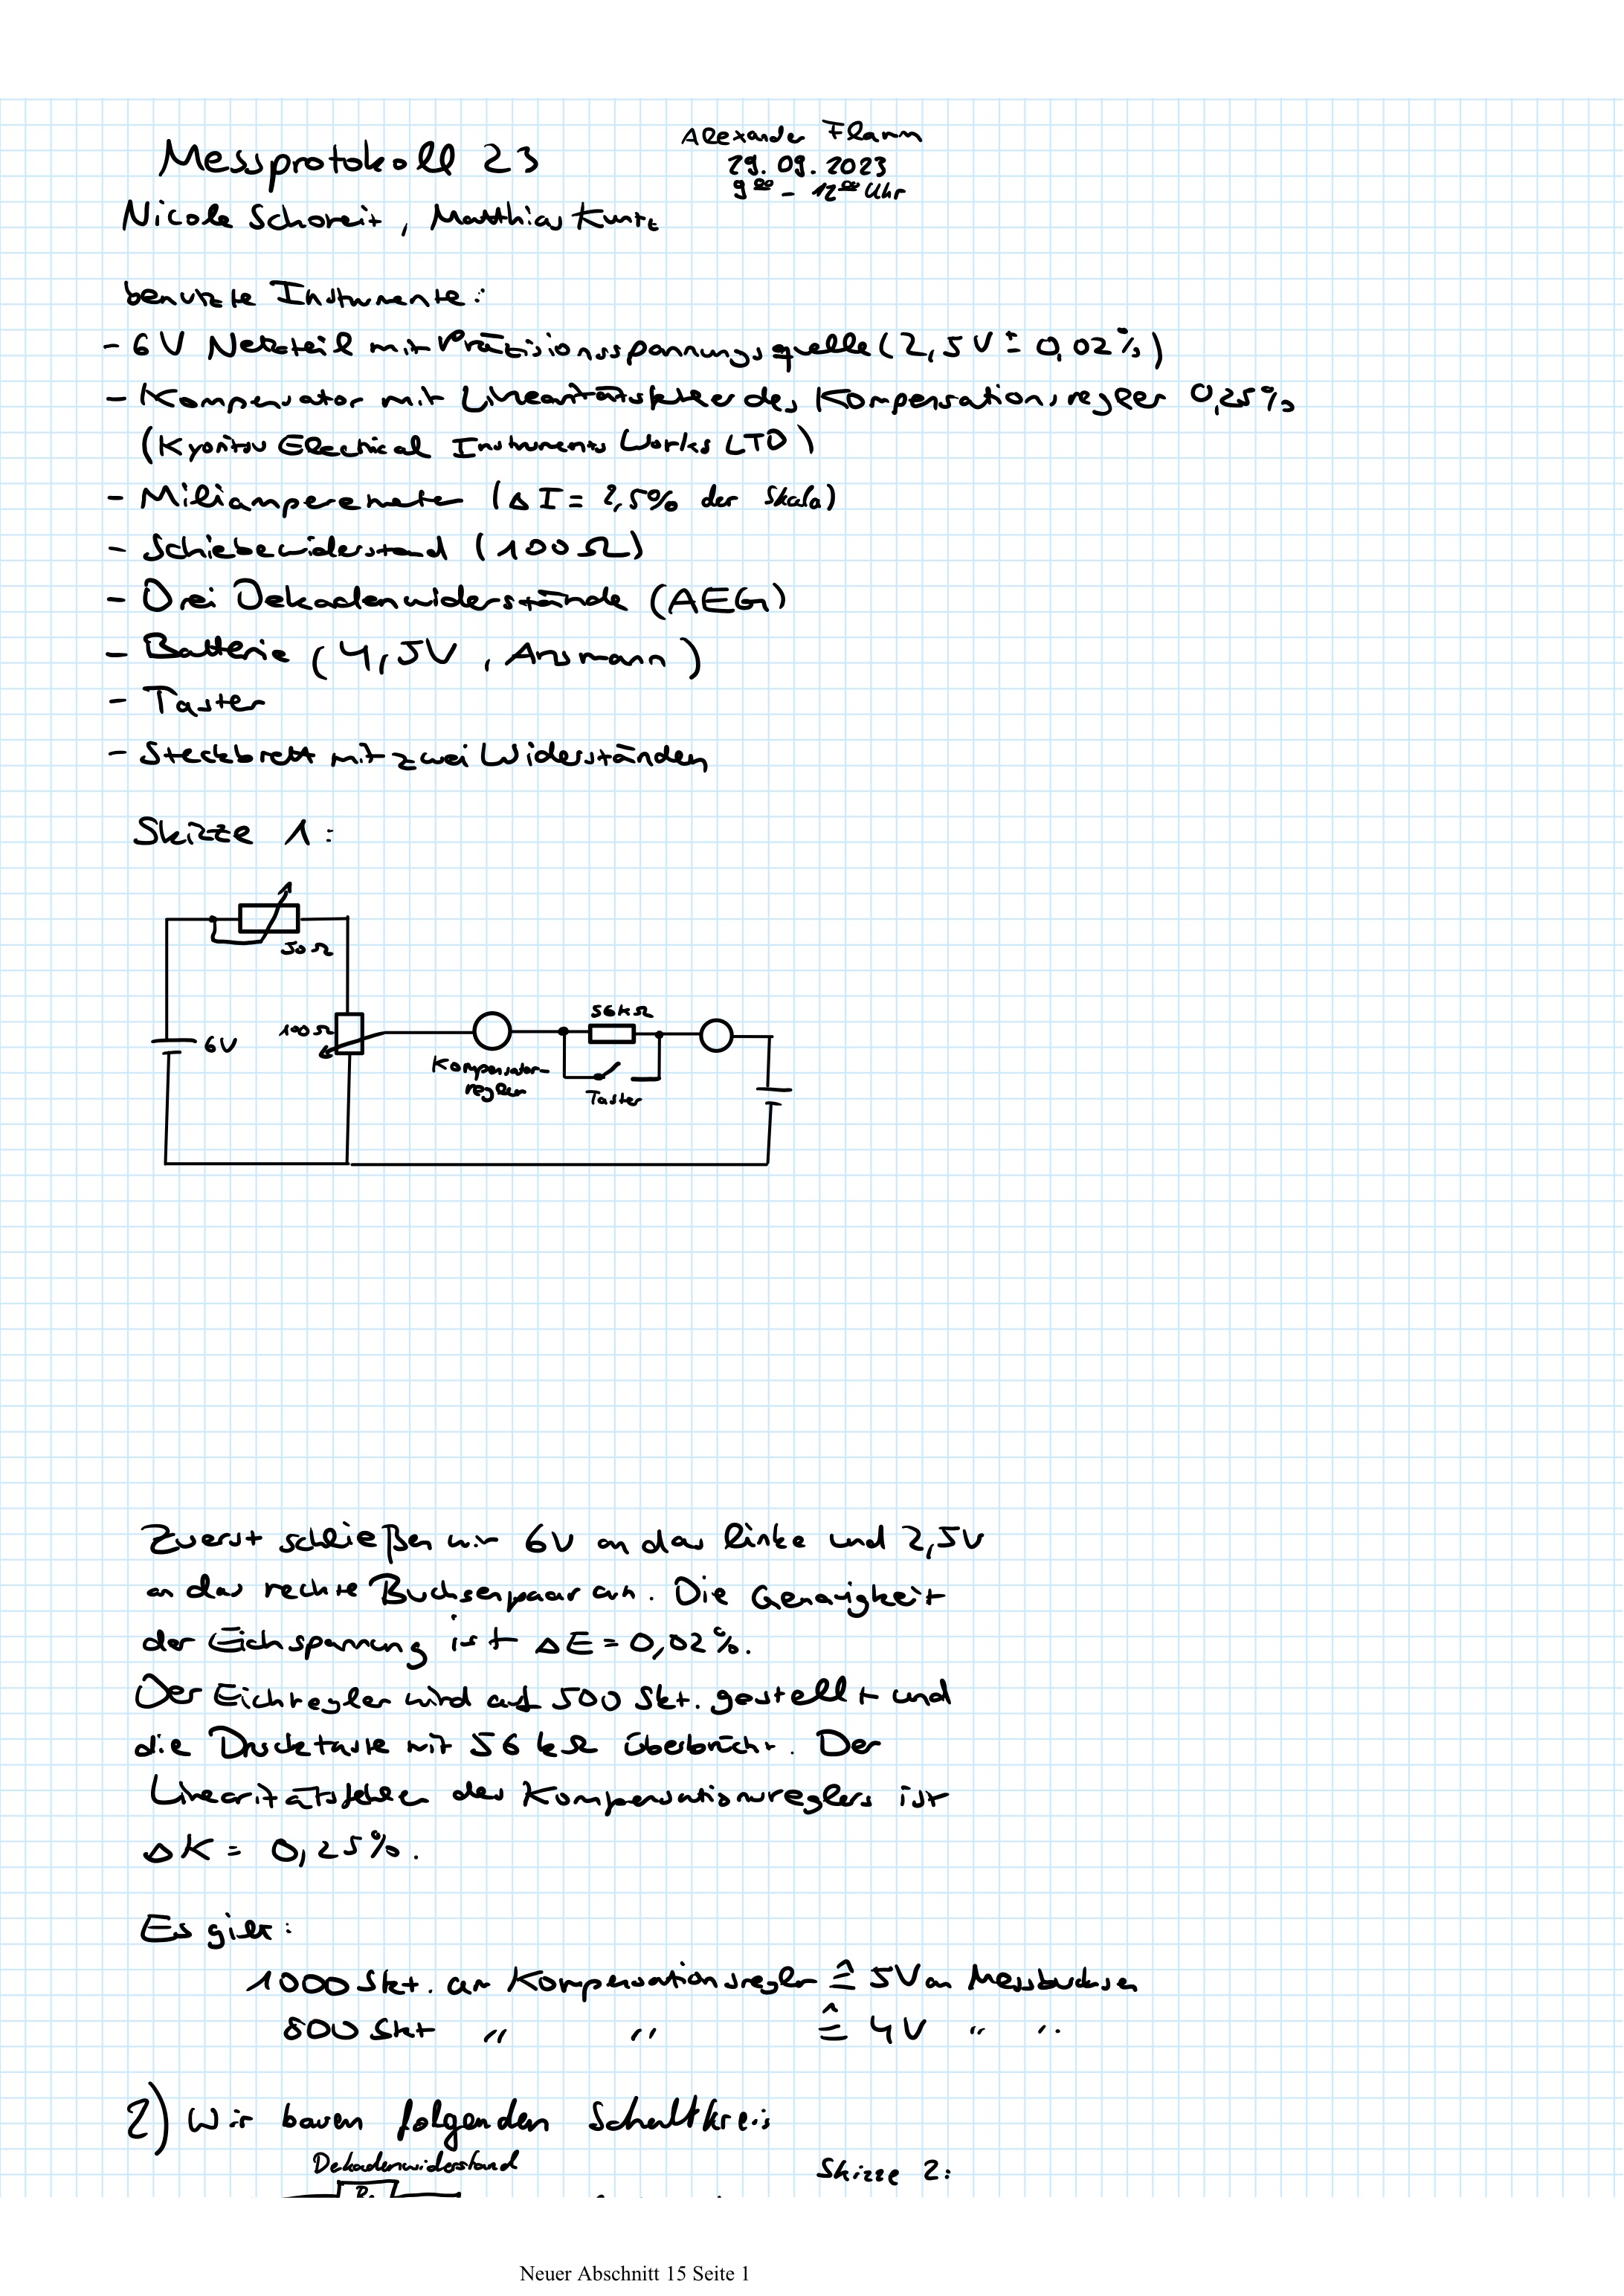 Messprotokoll 23
Alexander Flamm
29.09.2023
9⁰⁰ - 12⁰⁰ Uhr
Nicole Schoreit, Matthias Kuntz
benutzte Instrumente:
- 6V Netzteil mit Präzisionsspannungsquelle (2,5V ± 0,02%)
- Kompensator mit Linearitätsfehler des Kompensationsregler 0,25%
(Kyoritsu Electrical Instruments Works LTD)
- Miliamperemeter (ΔI = 2,5% der Skala)
- Schiebewiderstand (100Ω)
- Drei Dekadenwiderstände (AEG)
- Batterie (4,5V, Ansmann)
- Taster
- Steckbrett mit zwei Widerständen
Skizze 1:
50Ω
56kΩ
100Ω
6V
Kompensator-
reglern
Taster
Zuerst schließen wir 6V an das linke und 2,5V
an das rechte Buchsenpaar an. Die Genauigkeit
der Eichspannung ist ΔE = 0,02%.
Der Eichregler wird auf 500 Skt. gestellt und
die Drucktaste mit 56 kΩ überbrückt. Der
Linearitätsfehler des Kompensationsreglers ist
ΔK = 0,25%.
Es gilt:
1000 Skt. am Kompensationsregler ≙ 5V an Messbuchsen
800 Skt " " ≙ 4V " "
2) Wir bauen folgenden Schaltkreis
Dekadenwiderstand
Skizze 2:
Neuer Abschnitt 15 Seite 1